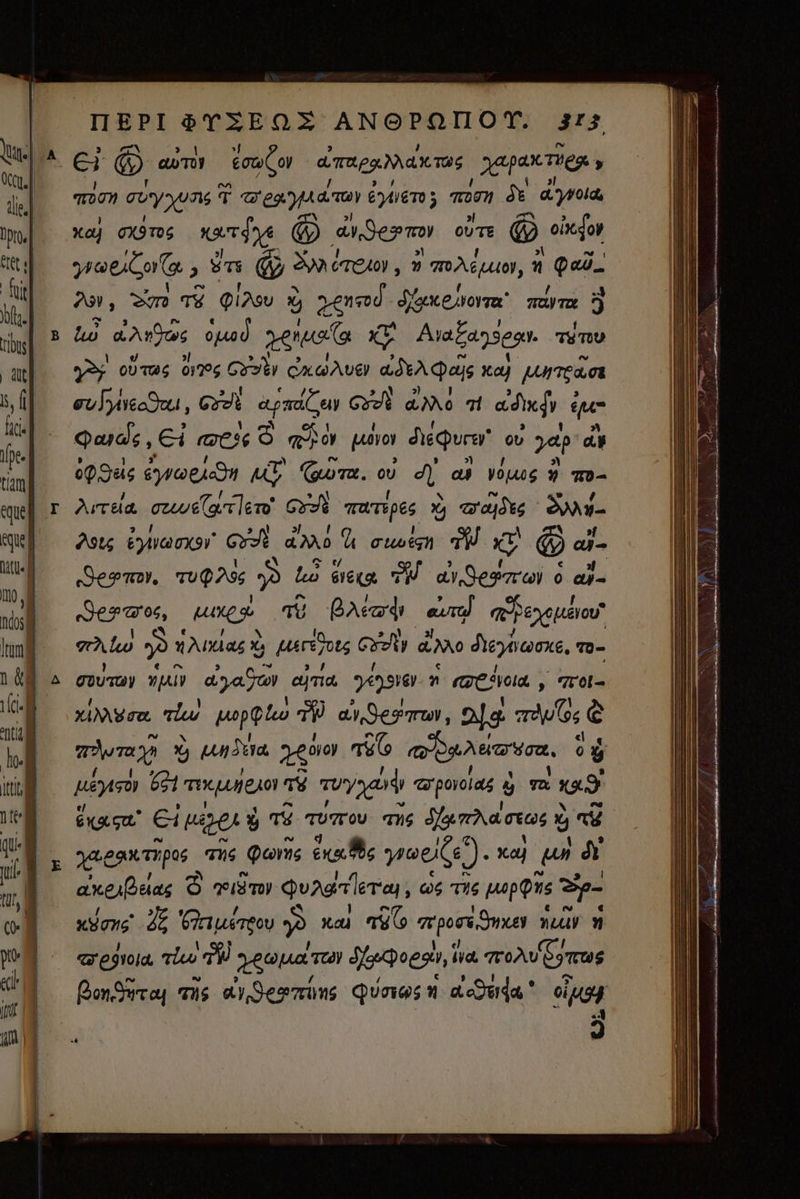 ΠΕΡΙ ΦΥΣΕΩΣ ΑΝΘΡΩΠΟΥ. 313
A εἰ τὸν αὐτὸν ἔσωζον ἀπαραλλάκτως χαρακτῆρα,
πόση σύγχυσις τῶν πραγμάτων ἐγίνετο; πόση δὲ ἄγνοια
καὶ σκότος κατεῖχε τὸν ἄνθρωπον οὔτε τὸν οἰκεῖον
γνωρίζοντα, οὔτε τὸν ἀλλότριον, ἢ πολέμιον, ἢ φαῦ-
λον, ἀπὸ τοῦ φίλου καὶ χρηστοῦ διακρίνοντα· πάντα δὲ
B ἦν ἀληθῶς ὁμοῦ χρήματα κατ' Ἀναξαγόραν. τύπου
γὰρ οὕτως ὄντος οὐδὲν ἐκώλυεν ἀδελφαῖς καὶ μητράσι
συγγίνεσθαι, οὐδὲ ἁρπάζειν οὐδὲ ἄλλό τι ἀδικεῖν ἐμ-
φανῶς, εἰ πρὸς τὸ παρὸν μόνον διέφυγεν· οὐ γὰρ ἂν
ὀφθεὶς ἐγνωρίσθη μετὰ ταῦτα. οὐ δὴ ἂν νόμος ἢ πο-
Γ λιτεία συνεστίετο· οὐδὲ πατέρες καὶ παῖδες ἀλλή-
λοις ἐγίνωσκον· οὐδὲ ἄλλό τι συνέστη τῶν κατὰ τὸν ἄν-
θρωπον. τυφλὸς γὰρ ἦν ἕνεκα τῶν ἀνθρώπων ὁ ἄν-
θρωπος, μικρὰ τοῦ βλέπειν αὐτῷ παρεχομένου·
πλὴν γὰρ ἡλικίας καὶ μεγέθους οὐδὲν ἄλλο διεγίνωσκε, το-
Δ σούτων ἡμῖν ἀγαθῶν αἰτία γέγονεν ἡ πρόνοια, ποι-
κίλλουσα τὴν μορφὴν τῶν ἀνθρώπων, διὰ παντὸς καὶ
πανταχῆ καὶ μηδένα χρόνον τοῦτο παραλείπουσα. ὃ καὶ
μέγιστόν ἐστι τεκμήριον τοῦ τυγχάνειν προνοίας καὶ τὰ καθ'
ἕκαστα· εἰ μέχρι καὶ τοῦ τύπου τῆς διαπλάσεως καὶ τοῦ
E χαρακτῆρος τῆς φωνῆς ἕκαστος γνωρίζεται. καὶ μὴ δι'
ἀκριβείας τὸ τοιοῦτον φυλάττεται, ὡς τῆς μορφῆς ἀρ-
κούσης· ἐξ ἐπιμέτρου γὰρ καὶ τοῦτο προσέθηκεν ἡμῖν ἡ
πρόνοια τὴν τῶν χρωμάτων διαφορὰν, ἵνα πολυτρόπως
βοηθῆται τῆς ἀνθρωπίνης φύσεως ἡ ἀσθένεια· οἶμαι
δὲ